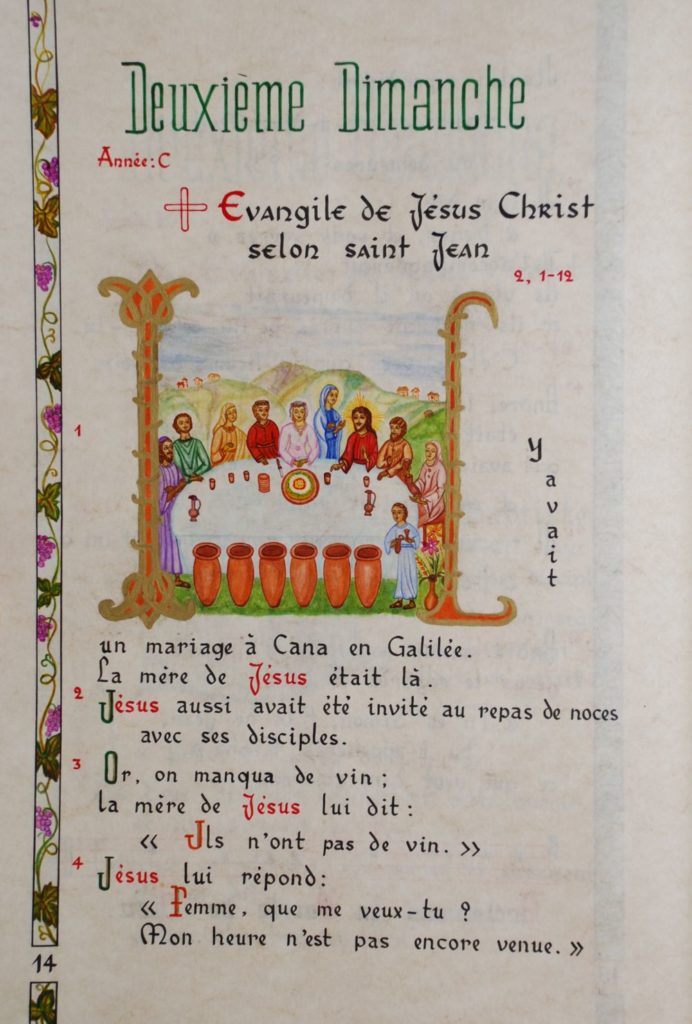 Deuxième Dimanche
Année: C
Evangile de Jésus Christ
selon saint Jean
2, 1-12
1
IL
y
avait
un mariage à Cana en Galilée.
La mère de Jésus était là.
2
Jésus aussi avait été invité au repas de noces
avec ses disciples.
3
Or, on manqua de vin ;
la mère de Jésus lui dit :
« Ils n'ont pas de vin. »
4
Jésus lui répond :
« Femme, que me veux-tu ?
Mon heure n'est pas encore venue. »
14